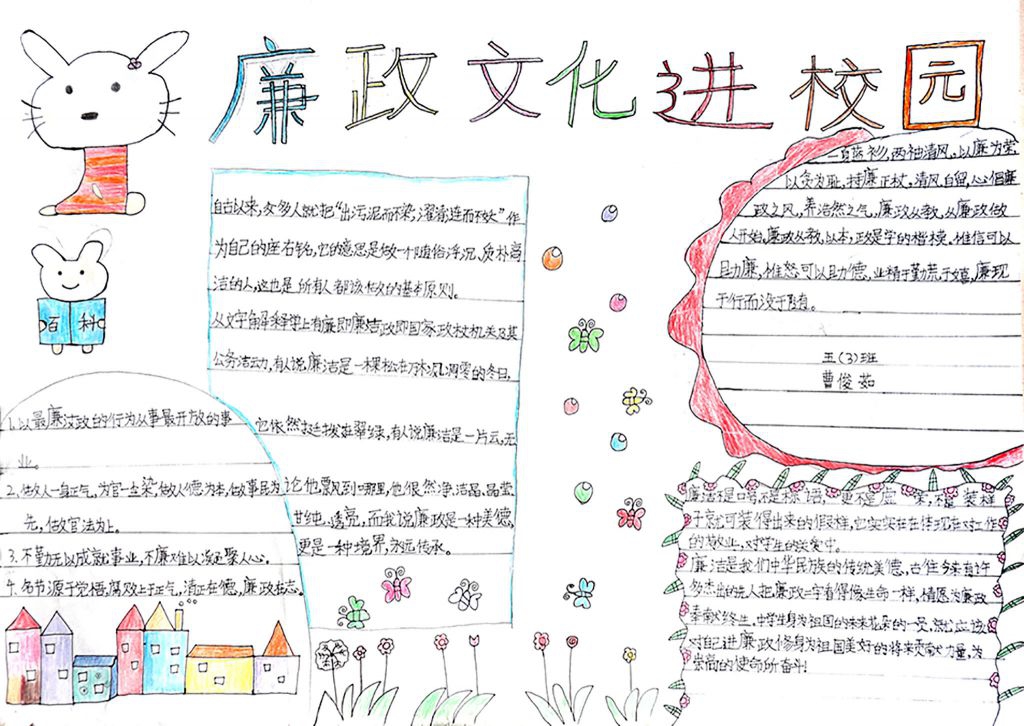 廉政文化进校园
百科
自古以来,好多人就把“出污泥而不染,濯清涟而不妖”作
为自己的座右铭,它的意思是做一个随俗浮沉、质朴高
洁的人,这也是所有人都该做的基本原则。
从文字解释字上有廉即廉洁,政即国家政权机关及其
公务活动,有人说廉洁是一棵松,在万林凋零的冬日,
它依然挺拔翠绿,有人说廉洁是一片云,无
论他飘风到哪里,他依然净洁晶,晶莹
甘纯、透亮,而我说廉政是一种美德,
更是一种境界,永远传承。
1.以最廉洁政的行为从事最开放的事
业。
2.做人一身正气,为官一尘染,做人德为本,做事民为
先,做官法为上。
3.不勤无以成就事业,不廉难以凝聚人心。
4.名节源于觉悟,腐败止于正气,清正在德,廉政在志。
一真蓝衫,两袖清风。以廉为荣
以贪为耻,持廉正权,清风自留,心倡廉
政之风,养浩然之气,廉政从教,从廉政做
人开始,廉政从教,以本,政是学的楷模。惟信可以
助廉,惟恕可以助德,业精于勤荒于嬉,廉现
于行而没于随。
五(3)班
曹俊茹
廉洁不是口号,不是标语,更不是虚 不是 装样
子就可装得出来的假样,它实实在在体现在对工作
的敬业,对学生的关爱中。
廉洁是我们中华民族的传统美德,古往今来有许
多杰出的先人把廉政二字看得像生命一样,情愿为廉政
奉献终生,中学生身为祖国的未来花朵的一员,就应该
对自己进廉政修身为祖国美好的将来贡献力量,为
崇高的使命所奋斗!